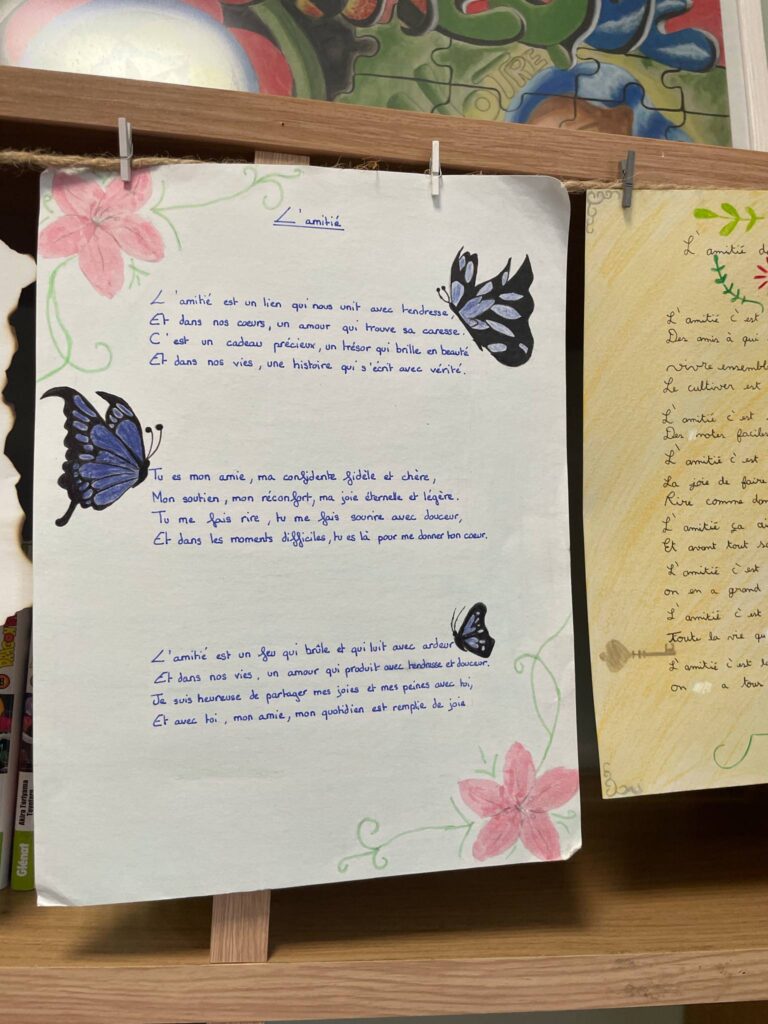 VOTRE
L'amitié
L'amitié est un lien qui nous unit avec tendresse,
Et dans nos cœurs, un amour qui trouve sa caresse.
C'est un cadeau précieux, un trésor qui brille en beauté
Et dans nos vies, une histoire qui s'écrit avec vérité.
Tu es mon amie, ma confidente fidèle et chère,
Mon soutien, mon réconfort, ma joie éternelle et légère.
Tu me fais rire, tu me fais sourire avec douceur,
Et dans les moments difficiles, tu es là pour me donner ton coeur.
L'amitié est un feu qui brûle et qui luit avec ardeur
Et dans nos vies, un amour qui produit avec tendresse et douceur.
Je suis heureuse de partager mes joies et mes peines avec toi,
Et avec toi, mon amie, mon quotidien est remplie de joie
L'amitié
L'amitié c'est
Des amis à qui
vivre ensemble
Le cultiver est
L'amitié c'est
Des notes faciles
L'amitié c'est
La joie de faire
Rire comme
L'amitié ça
Et avant tout
L'amitié c'est
on en a grand
L'amitié c'est
Toute la vie
L'amitié c'est
on a
Akira Toriyama
Toyotaro
Glénat